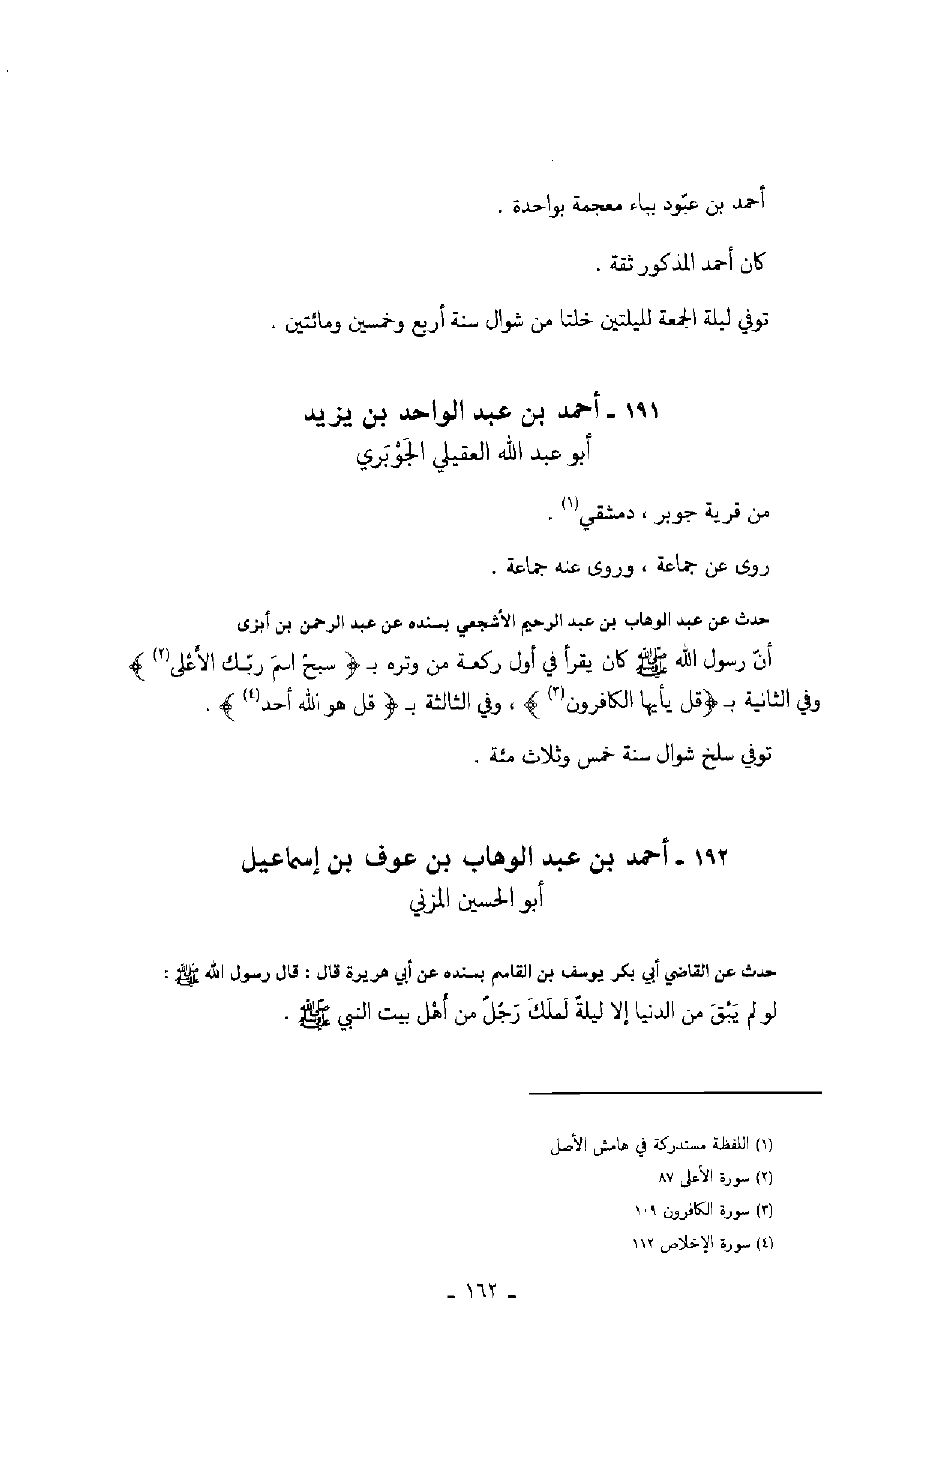 أحمد بن عبّود بباء معجمة بواحدة .
كان أحمد المذكور ثقة .
توفي ليلة الجمعة لليلتين خلتا من شوال سنة أربع وخمسين ومائتين .
١٩١ ـ أحمد بن عبد الواحد بن يزيد
أبو عبد الله العقيلي الجَوْبَري
من قرية جوبر ، دمشقي(١) .
روى عن جماعة ، وروى عنه جماعة .
حدث عن عبد الوهاب بن عبد الرحيم الأشجعي بسنده عن عبد الرحمن بن أبزى
أنّ رسول الله ﷺ كان يقرأ في أول ركعة من وتره بـ ﴿ سبحْ اسمَ ربِّك الأعْلى(٢) ﴾
وفي الثانية بـ ﴿قل يأيها الكافرون(٣) ﴾ ، وفي الثالثة بـ ﴿ قل هو الله أحد(٤) ﴾ .
توفي سلخ شوال سنة خمس وثلاث مئة .
١٩٢ ـ أحمد بن عبد الوهاب بن عوف بن إسماعيل
أبو الحسين المزني
حدث عن القاضي أبي بكر يوسف بن القاسم بسنده عن أبي هريرة قال : قال رسول الله ﷺ :
لو لم يَبْقَ من الدنيا إلا ليلةٌ لَملَكَ رَجُلٌ من أهْل بيت النبي ﷺ .
(١) اللفظة مستدركة في هامش الأصل
(٢) سورة الأعلى ٨٧
(٣) سورة الكافرون ١٠٩
(٤) سورة الإخلاص ١١٢
ـ ١٦٢ ـ